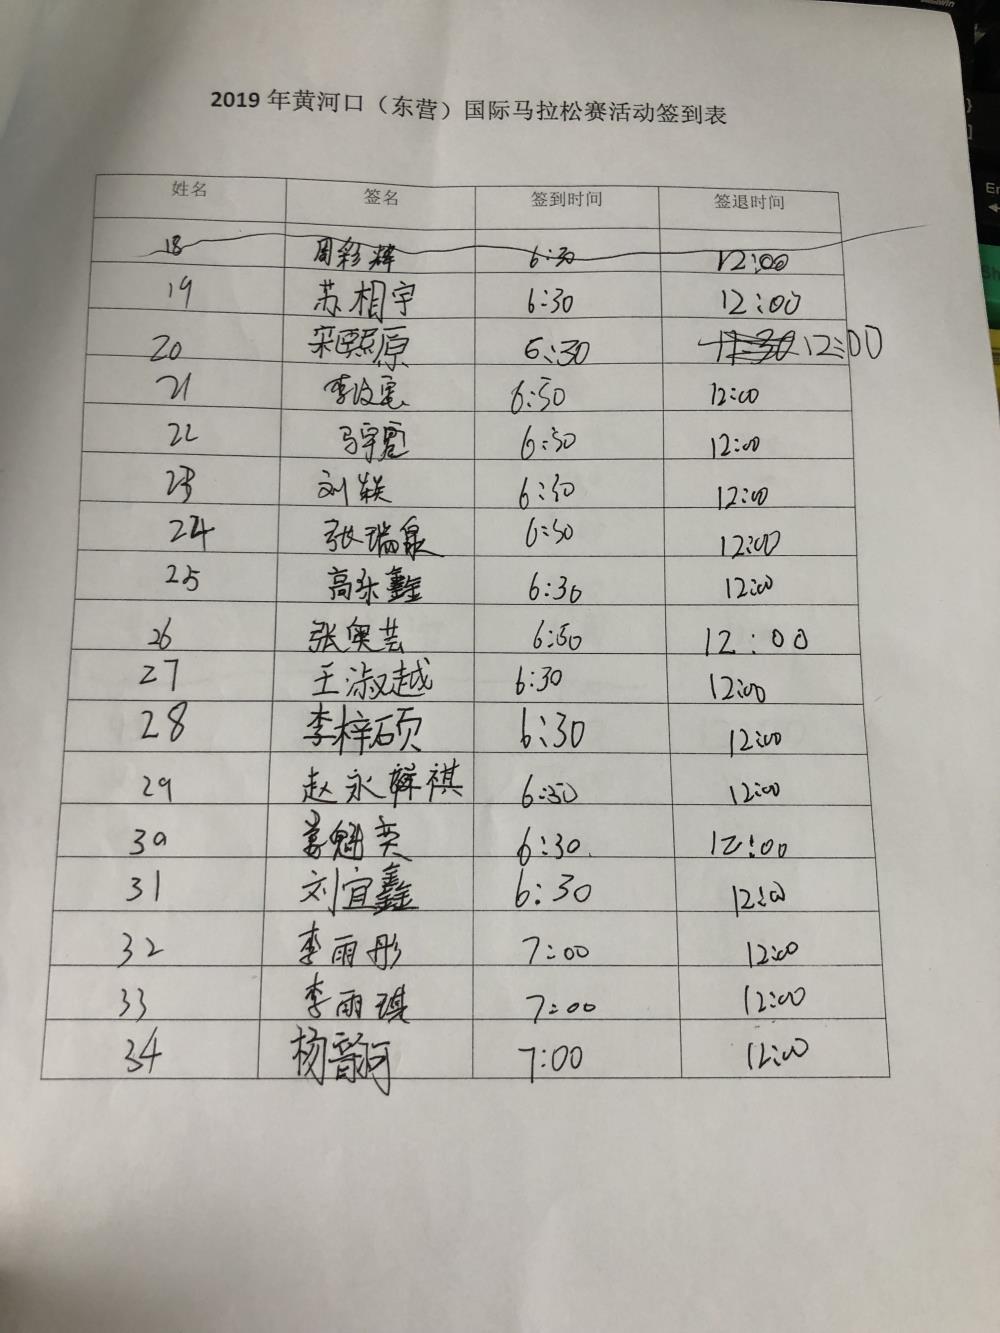 2019年黄河口（东营）国际马拉松赛活动签到表
姓名 签名 签到时间 签退时间
18 周彩辉 6:30 12:00
19 苏相宇 6:30 12:00
20 宋熙原 6:30 12:00
21 6:30 12:00
22 马宇霄 6:30 12:00
23 刘轶 6:30 12:00
24 张瑞泉 6:30 12:00
25 高乐鑫 6:30 12:00
26 张奥芸 6:30 12:00
27 王淑越 6:30 12:00
28 李梓硕 6:30 12:00
29 赵永祺 6:30 12:00
30 姜魁奕 6:30 12:00
31 刘宜鑫 6:30 12:00
32 李雨彤 7:00 12:00
33 李雨琪 7:00 12:00
34 杨晋河 7:00 12:00